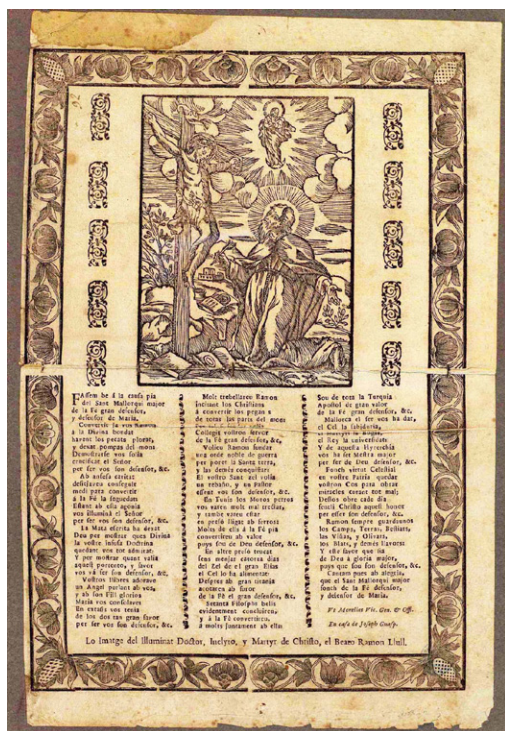 FAssem be á la causa pia
y del Sant Mallorqui major
de la Fé gran defensor,
y defensor de Maria.
Convertit la vos
á la Divina bondat
havent los pecats plorat,
y dexat pompas del mont
Demostrarse vos
crucificat el Señor
per ser vos son defensor, &c.
Ab
desitjareu
medi para convertir
á la Fé la
Estant ab esta agonia
vos illuminá el Señor
per ser vos son defensor, &c.
La Mata escrita ha dexat
Deu per mostrar ques Divina
la vostre infusa Doctrina
quedant ven tot admirat:
Y per mostrar quant valia
aquell portento, y favor
vos vá fer son defensor, &c.
Vostros llibres adorava
un Angel portat ab veu,
y ab son
Maria vos consolava
En extasis vos tenia
de los dos tan gran favor
per ser vos son defensor, &c.
Molt treballareu Ramon
incitant los Christians
á convertir los
de totas las parts del mont
Collegis vostros fervor
de la Fé gran defensor, &c.
Volieu Ramon fundar
una orde noble de guerra
per poder la Santa terra,
y las demés conquistar
El vostro Sant zel volia
un rebaño, y un Pastor
essent vos son defensor, &c.
En Tunis los Moros petrea
vos varen molt mal tractar,
y també varen estar
en presó lligat ab ferros
Molts de ells á la Fé pia
convertireu ab valor
puys sou de Deu defensor, &c.
En altre presó
sens menjar catorze dias
del Zel de el gran Elias
el Cel lo ha alimentat
Desprès ab gran tirania
acotaren ab furor
de la Fé el gran defensor, &c.
Setanta Filosophs
evidentment concluireu;
y á la Fé convertireu,
á molts juntament ab ells:
Sou de tota la Turquia
Apostol de gran valor
de la Fé gran defensor, &c.
Mallorca el ser vos ha dat,
el Cel la sabiduria,
el Rey la universitat
Y de aquesta Hyerarchia
vos ha fet Mestre major
per ser de Deu defensor, &c.
Fonch virtut Celestial
en vostre Patria quedar
volgren Con para obrar
miracles curant tot mal;
Dellos obre cada dia
Christo aquest honor
per esser son defensor, &c.
Ramon sempre guardaunos
los Camps, Terras, Bestiars,
las Viñas, y Olivars,
los Blats, y demés llavors:
Y esse favor que sia
de Deu á gloria major,
puys que sou son defensor, &c.
Cantam puys ab alegria,
que el Sant Mallorqui major
fonch de la Fé defensor,
y defensor de Maria.
Vt Morellus Vic. Gen. & Off.
En casa de Joseph Guasp.
Lo Imatge del Illuminat Doctor, Inclyto, y Martyr de Christo, el Beato Ramon Llull.